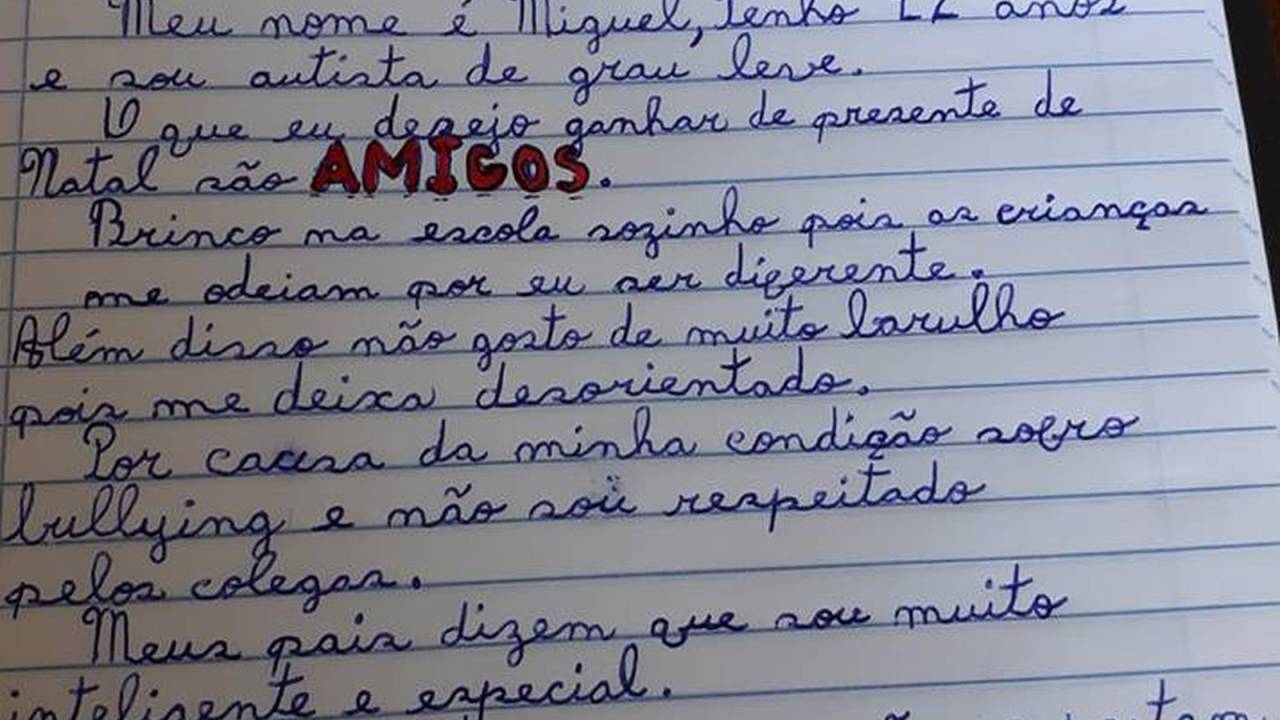 Meu nome é Miguel, tenho 11 anos
e sou autista de grau leve.
O que eu desejo ganhar de presente de
Natal são AMIGOS.
Brinco na escola sozinho pois as crianças
me odeiam por eu ser diferente.
Além disso não gosto de muito barulho
pois me deixa desorientado.
Por causa da minha condição sofro
bullying e não sou respeitado
pelos colegas.
Meus pais dizem que sou muito
inteligente e especial.